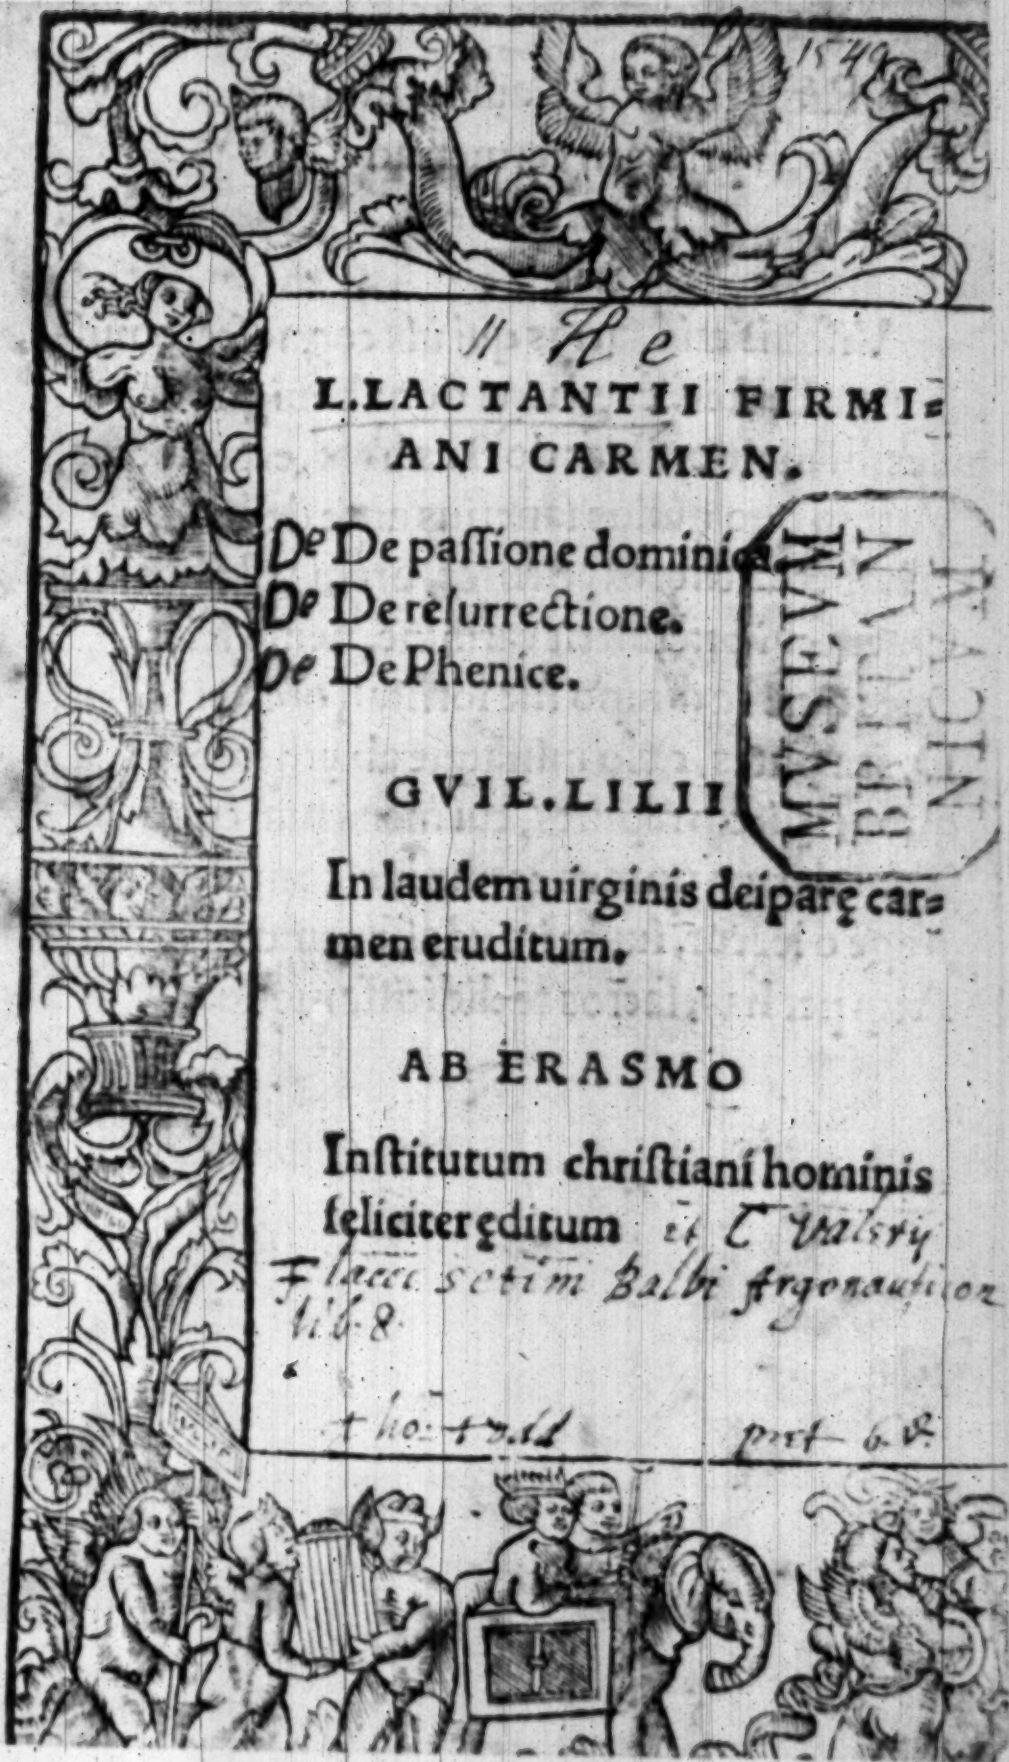 1549
11 He
L.LACTANTII FIRMI=
ANI CARMEN.
De De paſſione dominica.
De De reſurrectione.
De De Phenice.
MVSEVM
BRITAN
NICVM
GVIL.LILII
In laudem uirginis deiparę car=
men eruditum.
AB ERASMO
Inſtitutum chriſtiani hominis
feliciter ęditum et C Valerij
Flacci setini Balbi Argonauticon
lib. 8.
pret 6. d.